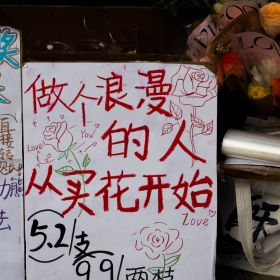 做个浪漫
的人
从买花开始
Love
You
Love
5.2/支
9.9/两枝